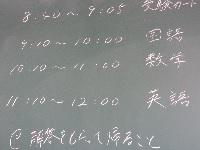 8:40～9:05 受験カード
9:10～10:00 国語
10:10～11:00 数学
11:10～12:00 英語
解答をもらって帰ること